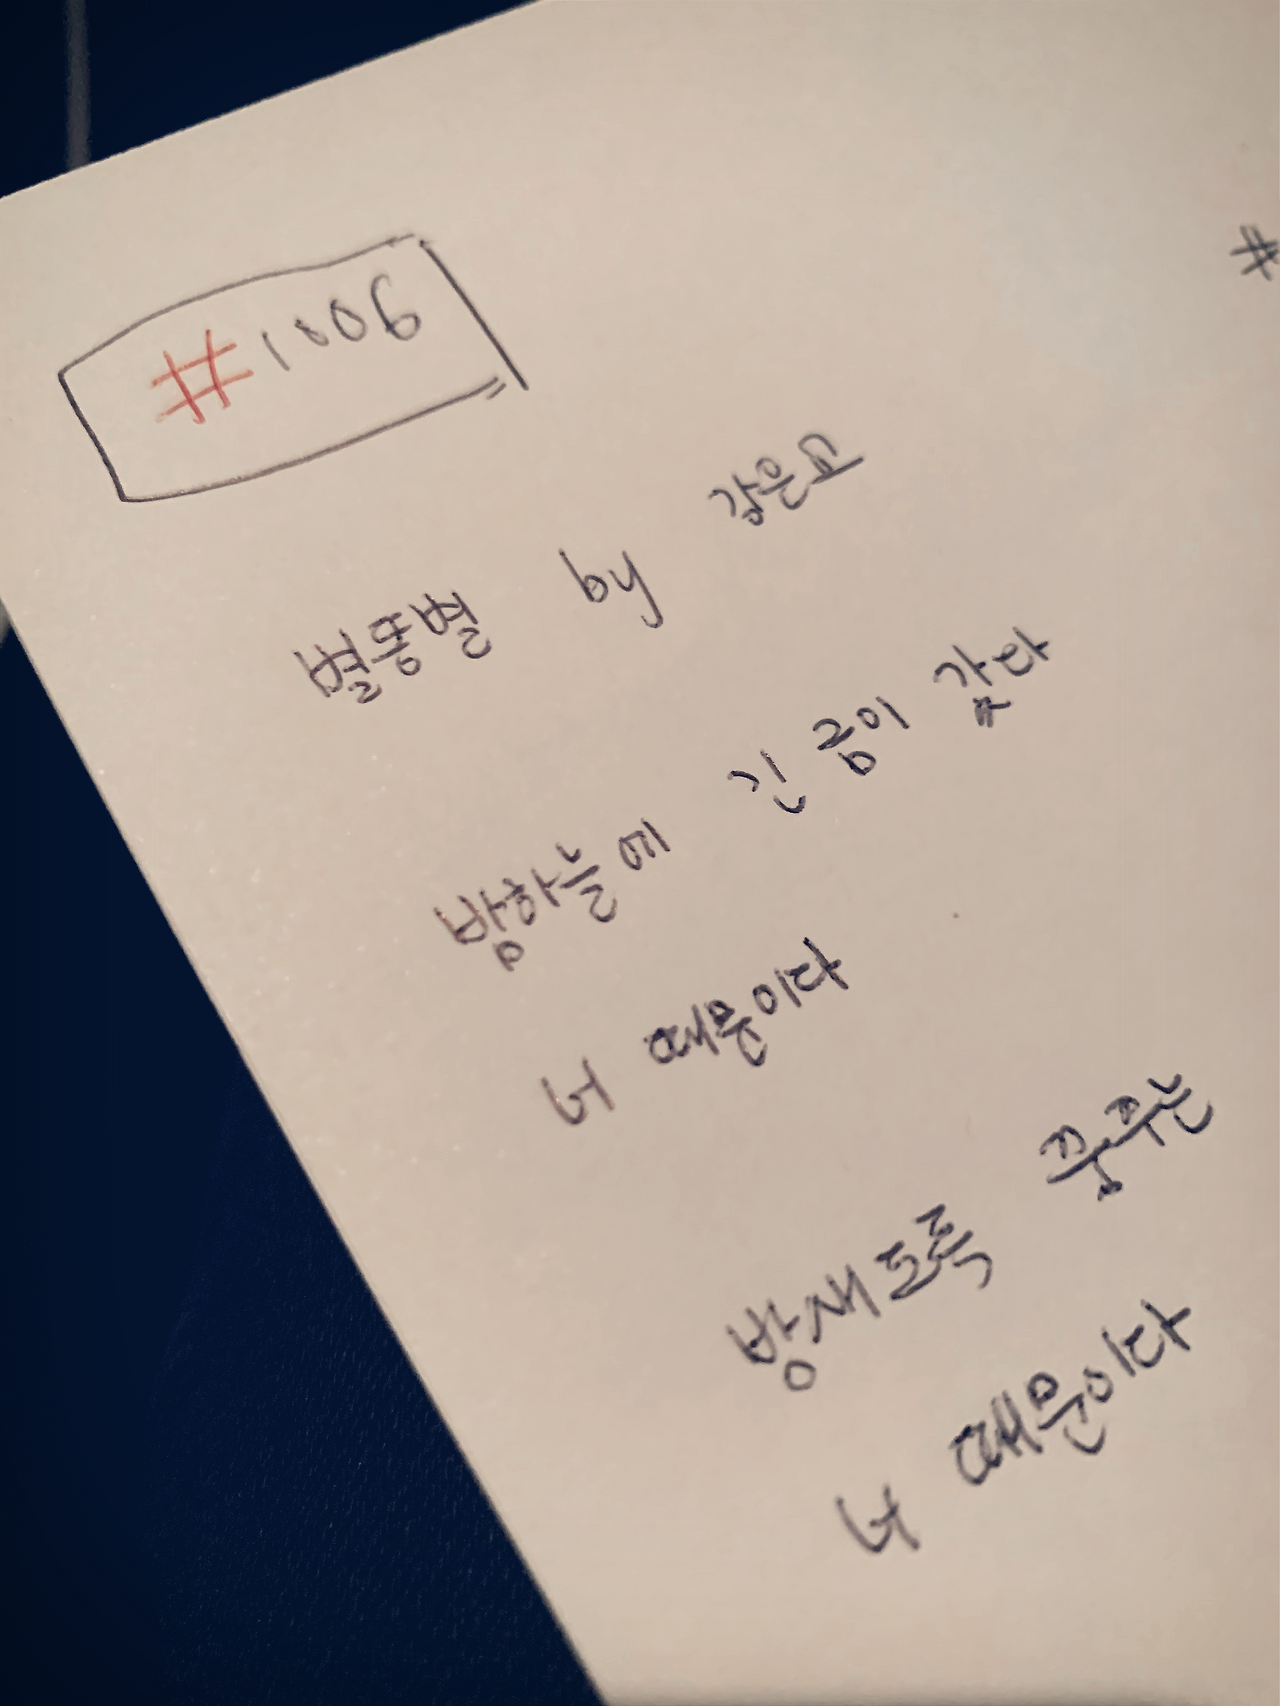 #1006
#
별똥별 by 강은교
밤하늘에 긴 금이 갔다
너 때문이다
밤새도록 꿈꾸는
너 때문이다